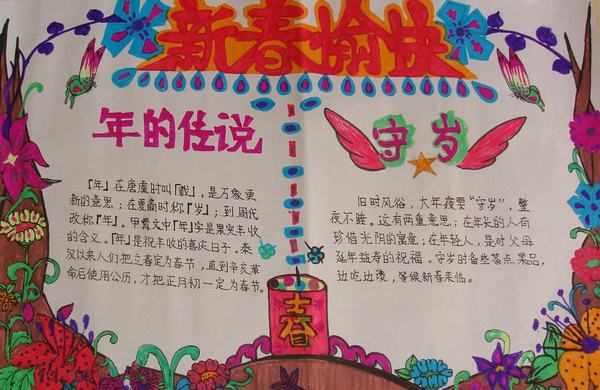 新春愉快
年的传说
「年」在唐虞时叫「载」，是万象更
新的意思；在夏商时称「岁」；到周代
改称「年」。甲骨文中「年」字是果实丰收
的含义。「年」是祝丰收的喜庆日子。秦
汉以来人们把立春定为春节，直到辛亥革
命后使用公历，才把正月初一定为春节。
守岁
旧时风俗，大年夜要“守岁”，整
夜不睡。这有两重意思；在年长的人有
珍惜光阴的寓意；在年轻人，是对父母
延年益寿的祝福。守岁时备些茶点果品，
边吃边谈，等候新春来临。
春